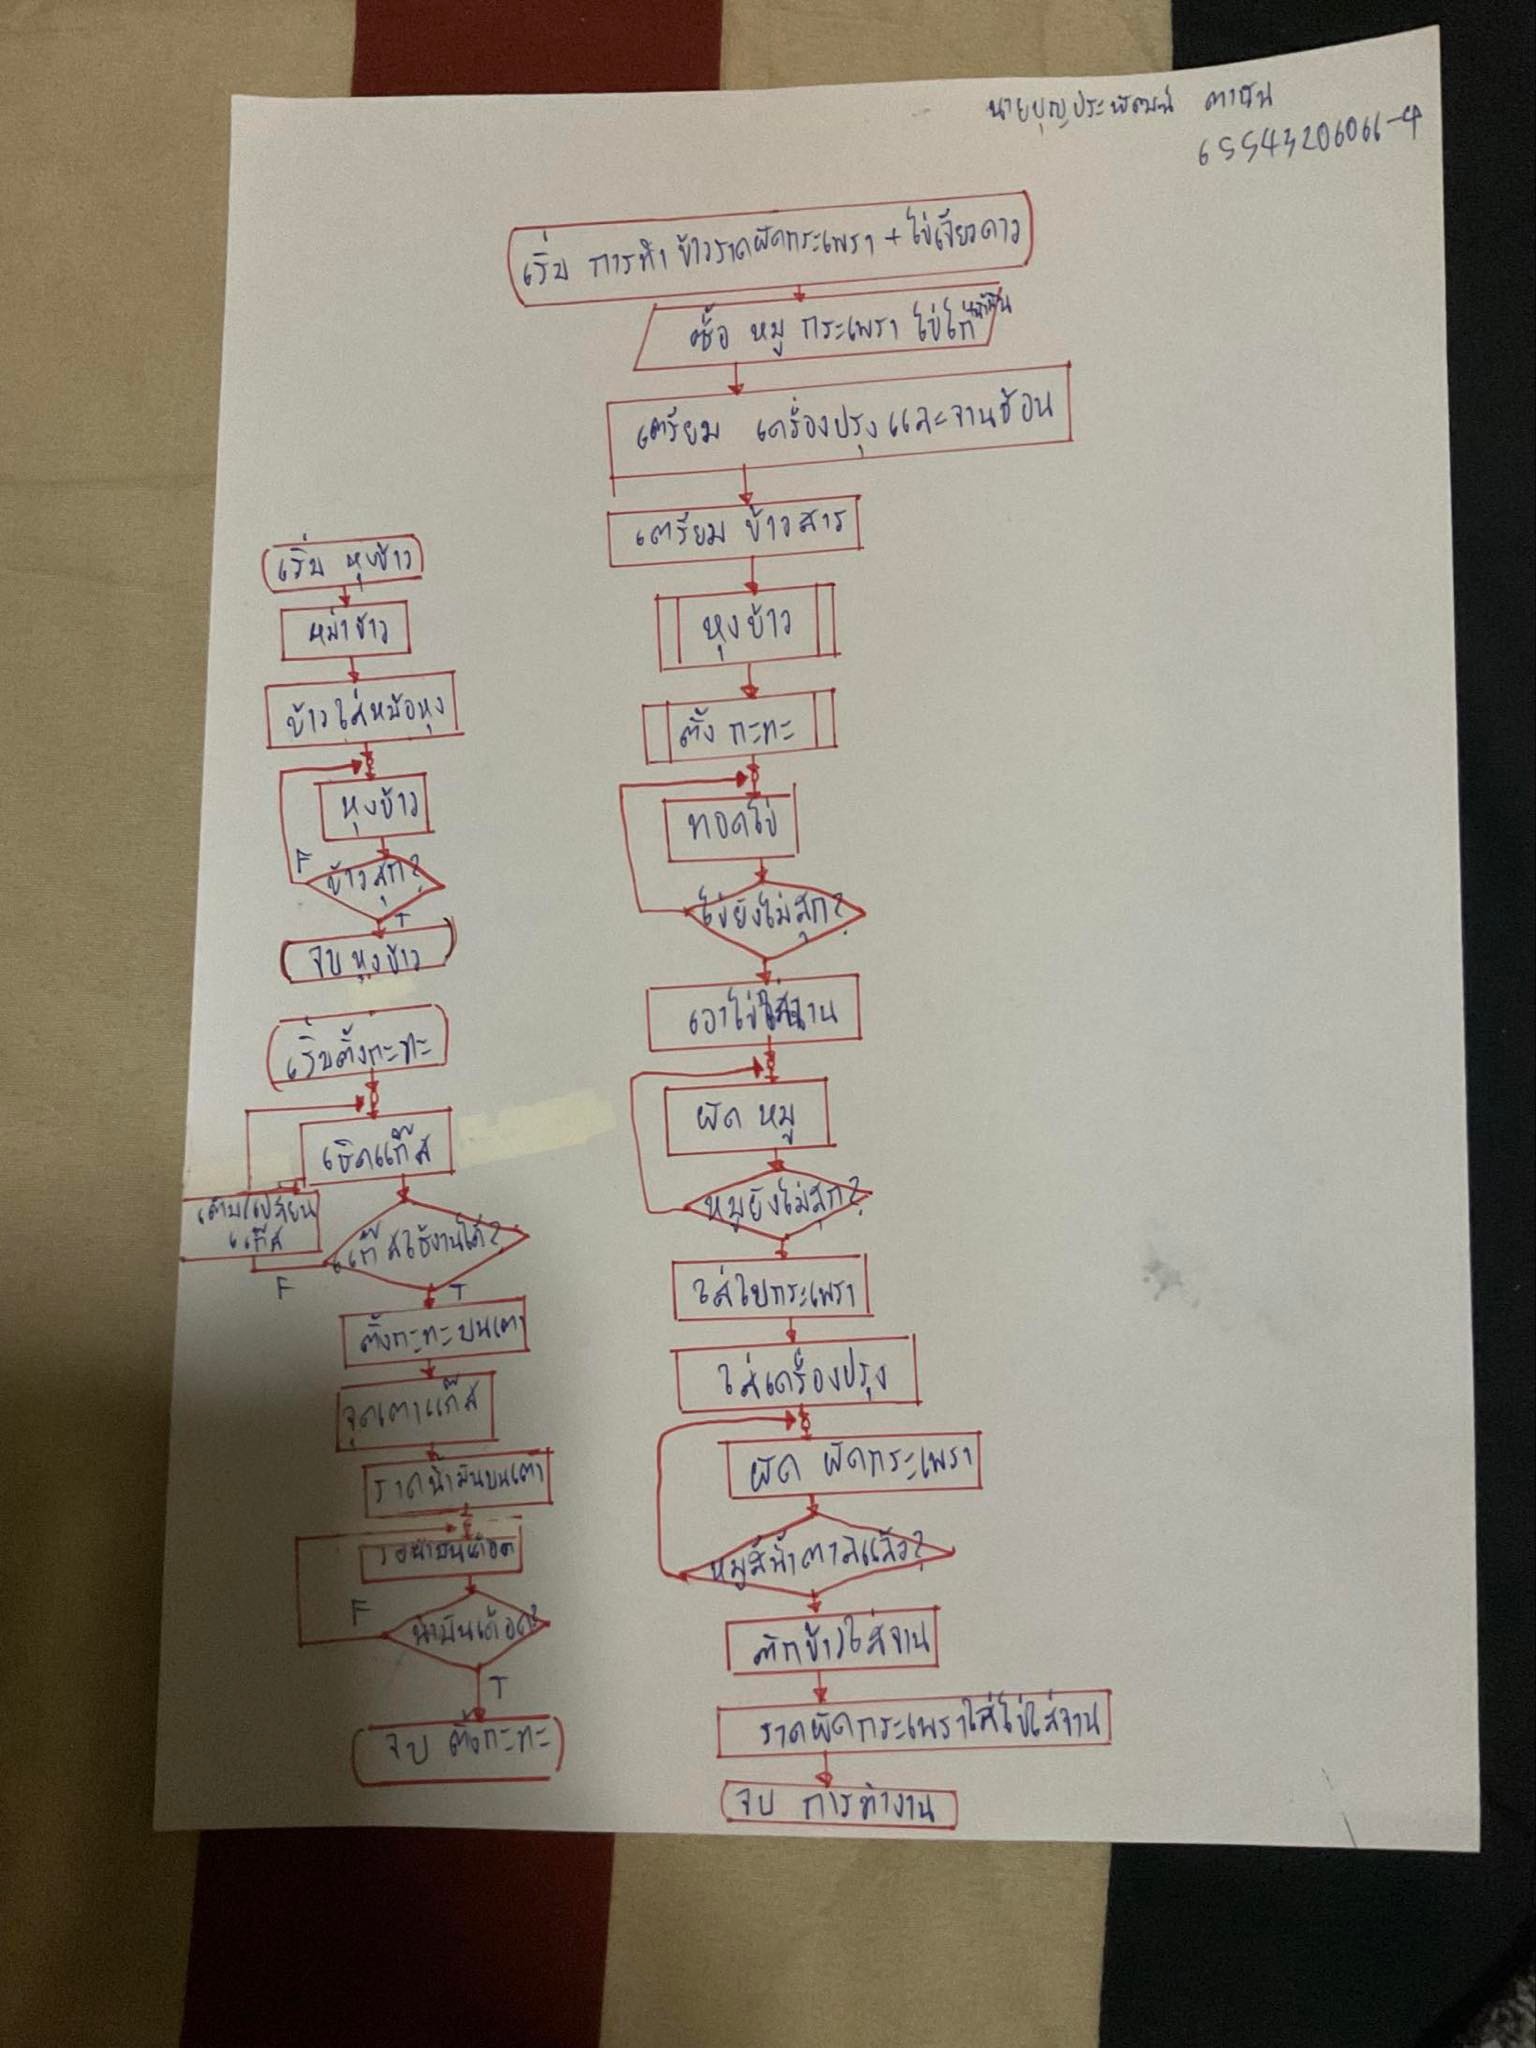 นายบุญประพัฒน์ ตาฝั้น
65543206066-4
เริ่ม การทำ ข้าวราดผัดกระเพรา + ไข่เจียวดาว
ซื้อ หมู กระเพรา ไข่ไก่ น้ำมัน
เตรียม เครื่องปรุงและจานช้อน
เตรียม ข้าวสาร
หุงข้าว
ตั้ง กะทะ
ทอดไข่
ไข่ยังไม่สุก?
เอาไข่ใส่จาน
ผัด หมู
หมูยังไม่สุก?
ใส่ใบกระเพรา
ใส่เครื่องปรุง
ผัด ผัดกระเพรา
หมูสีน้ำตาลแล้ว?
ตักข้าวใส่จาน
ราดผัดกระเพราใส่ไข่ใส่จาน
จบ การทำงาน
เริ่ม หุงข้าว
หม่าข้าว
ข้าวใส่หม้อหุง
หุงข้าว
F
ข้าวสุก?
T
จบ หุงข้าว
เริ่มตั้งกะทะ
เชิดแก๊ส
เติม/เปลี่ยน
แก๊ส
แก๊สใช้งานได้?
F
T
ตั้งกะทะบนเตา
จุดเตาแก๊ส
ราดน้ำมันบนเตา
รอน้ำมันเดือด
F
น้ำมันเดือด?
T
จบ ตั้งกะทะ